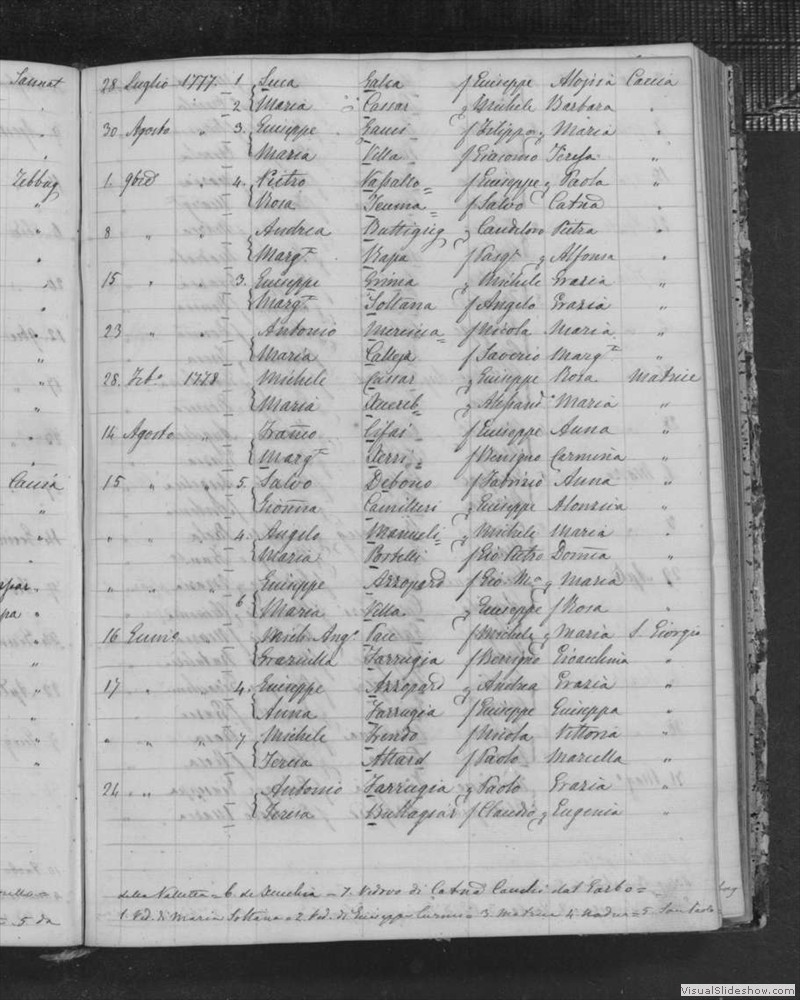 Sannat
28 Luglio 1777. 1. Luca Galea f Giuseppe Aloisia Caccia
2 Maria Cassar q Michele Barbara "
30 Agosto " 3. Giuseppe Gauci f Filippo q Maria "
Maria Villa f Giacomo Teresa "
Zebbug 1. 9bre " 4. Pietro Vassallo f Giuseppe q Paola "
Rosa Teuma f Salvo Catna "
8 " " Andrea Buttigieg q Candiloro Pietra "
Marga Rapa f q Alfonsa "
15 " " 3. Giuseppe Grima q Michele Grazia "
Marga Soltana f Angelo Grazia "
23 " " Antonio Mercieca f Nicola Maria "
Maria Calleja f Saverio Marga "
28. Feb. 1778 Michele Cassar q Giuseppe Rosa Matrice
Maria Xuereb q Maria "
14 Agosto " Franco Cifai f Giuseppe Anna "
Marga f Benigno Carmina "
15 " " 5. Salvo Debono f Fabrizio Anna "
Gionna Camilleri q Giuseppe Alonzia "
" " " 4. Angelo Manueli q Michele Maria "
Maria Portelli f Gio Pietro Domca "
" " " Giuseppe Azzopard f Gio Ma q Maria "
6 Maria Villa q Giuseppe f Rosa "
16 Mich Ango Pace f Michele q Maria S. Giorgio
Graziulla Farrugia f Benigno Gioacchina "
17 " 4. Giuseppe Azzopard q Andrea Grazia "
Anna Farrugia f Giuseppe Giuseppa "
" " " 7 Michele Zindo f Nicola Vittoria "
Teresa Attard f Paolo Mariella "
24 " " Antonio Farrugia q Paolo Grazia "
Teresa Buttagiar f Claudio q Eugenia "
della Valletta = 6. de = 7. Vedovo di Catna Cauchi dal Garbo =
1. Ved. di Maria Soltana = 2. Ved. di Giuseppe 3. Matrice 4. Nadur = 5.
VisualSlideshow.com